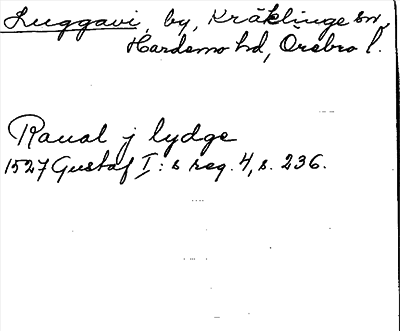 Luggavi, by, Kräklinge sn,
Hardemo hd, Örebro l.
Raual j lydge
1527 Gustaf I: s reg. 4, s. 236.